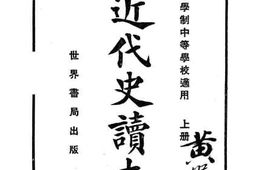 學制中等學校適用
上册
近代史讀
世界書局出版
黃